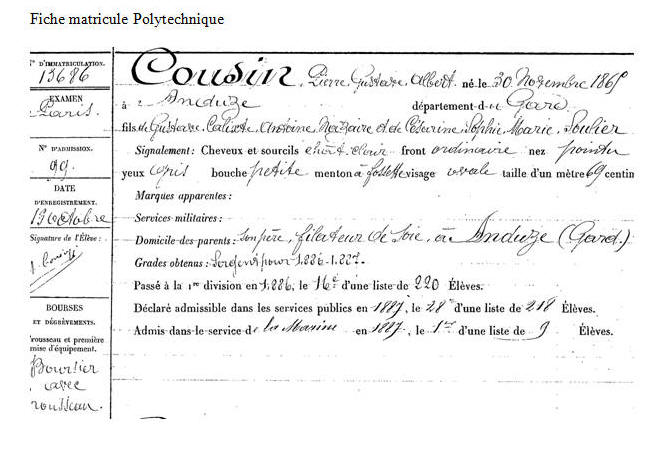 Fiche matricule Polytechnique
N° D'IMMATRICULATION.
13686
EXAMEN
Paris.
N° D'ADMISSION.
99.
DATE
D'ENREGISTREMENT.
13 Octobre
Signature de l'Élève :
BOURSES
ET DÉGRÈVEMENTS.
rousseau et première
mise d'équipement.
Boursier
avec
rousseau.
Cousin, Pierre Gustave Albert né le 30 Novembre 1865
à Anduze département d Gard
fils de Gustave Calixte Antoine Nazaire et de Césarine Sophie Marie Soulier
Signalement: Cheveux et sourcils chat. clair front ordinaire nez pointu
yeux gris bouche petite menton à fossette visage ovale taille d'un mètre 69 centim
Marques apparentes :
Services militaires :
Domicile des parents : son père, filateur de soie, à Anduze (Gard.)
Grades obtenus : Sergent pour 1.886-1.887.
Passé à la 1re division en 1.886, le 16e d'une liste de 220 Élèves.
Déclaré admissible dans les services publics en 1887, le 28e d'une liste de 218 Élèves.
Admis dans le service de la Marine en 1887, le 1er d'une liste de 9 Élèves.